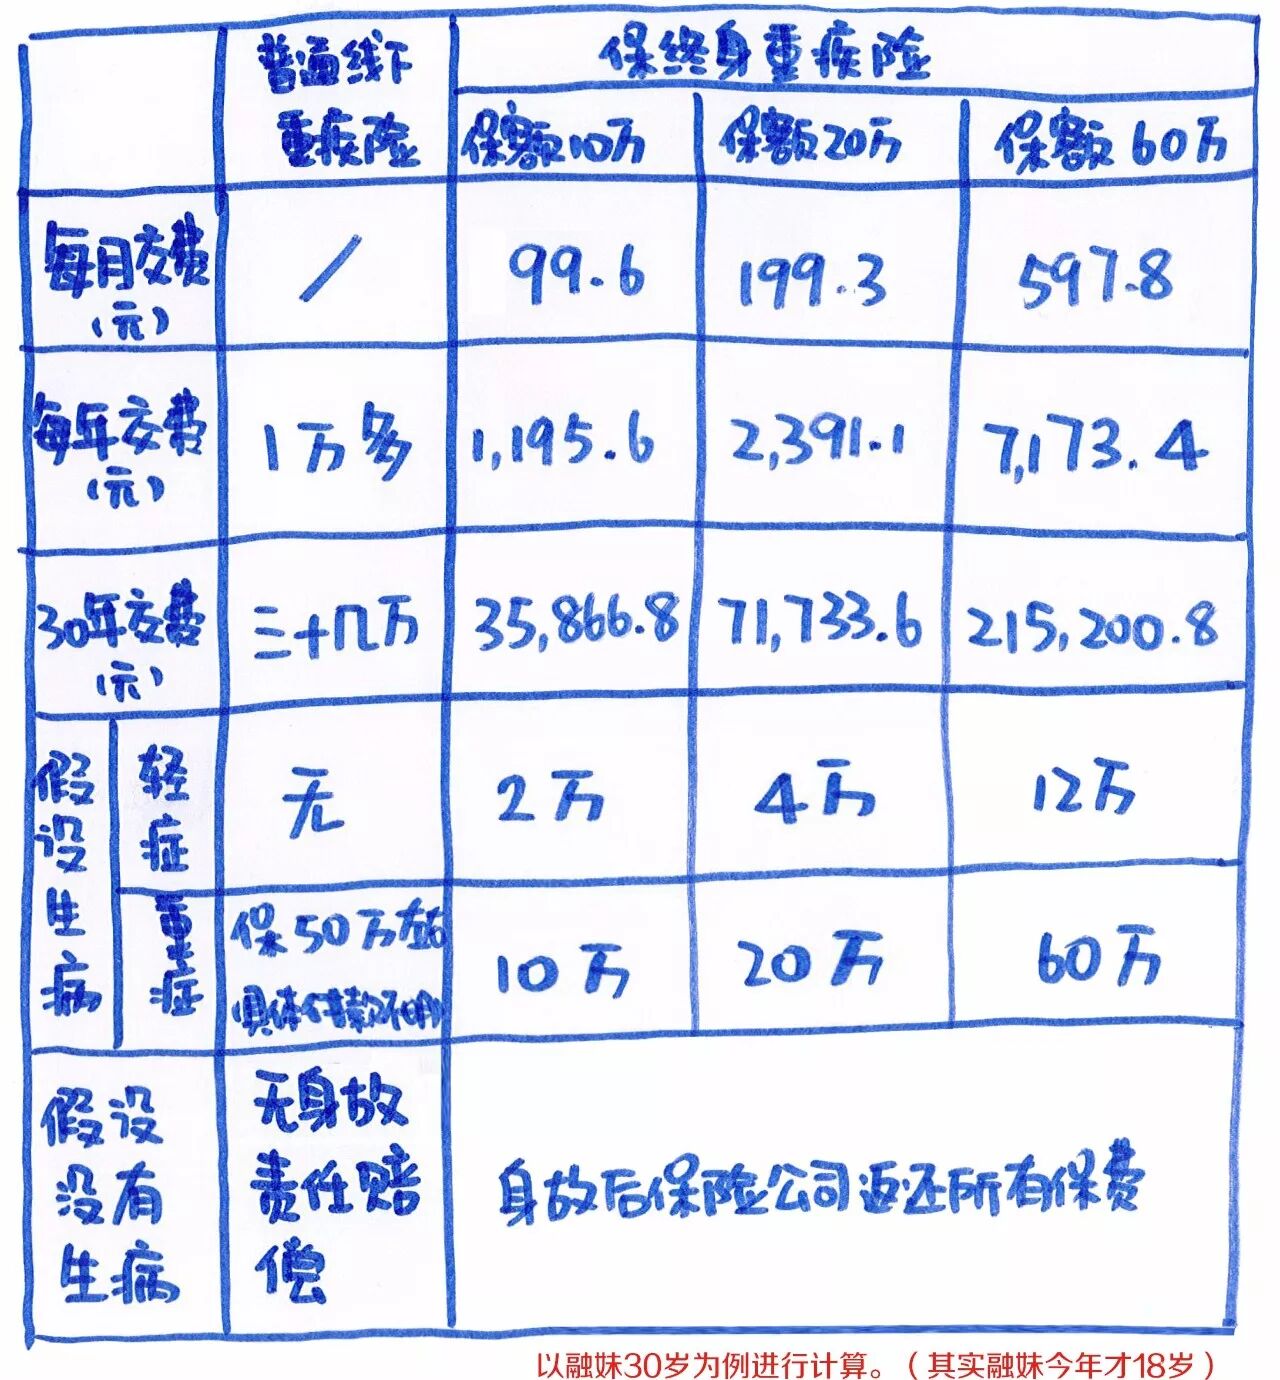 普通线下
重疾险
保终身重疾险
保额10万
保额20万
保额60万
每月交费
(元)
/
99.6
199.3
597.8
每年交费
(元)
1万多
1,195.6
2,391.1
7,173.4
30年交费
(元)
三十几万
35,866.8
71,733.6
215,200.8
假设生病
轻症
无
2万
4万
12万
重症
保50万左右
(具体付款不明)
10万
20万
60万
假设
没有
生病
无身故
责任赔
偿
身故后保险公司返还所有保费
以融妹30岁为例进行计算。（其实融妹今年才18岁）